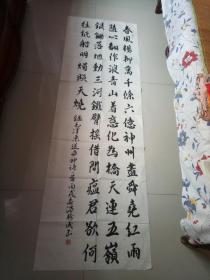 春風楊柳萬千條六億神州盡舜堯紅雨
隨心翻作浪青山着意化為橋天連五嶺
銀鋤落地動三河鐵臂搖借問瘟君欲何
往紙船明燭照天燒 毛澤東送瘟神詩